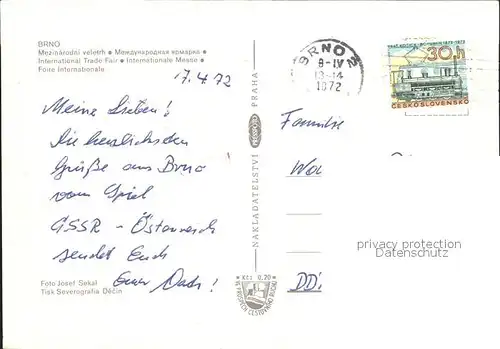 BRNO
Mezinárodní veletrh • Международная ярмарка •
International Trade Fair • Internationale Messe •
Foire Internationale
17.4.72
Meine Lieben!
Die herzlichsten
Grüße aus Brno
vom Spiel
ČSSR - Österreich
sendet Euch
Euer
Foto Josef Sekal
Tisk Severografia Děčín
NAKLADATELSTVÍ PRESSFOTO PRAHA
Kčs 0,20
BRNO 2
8-IV
13-14
1972
30 h
ČESKOSLOVENSKO
Familie
privacy protection
Datenschutz
DD